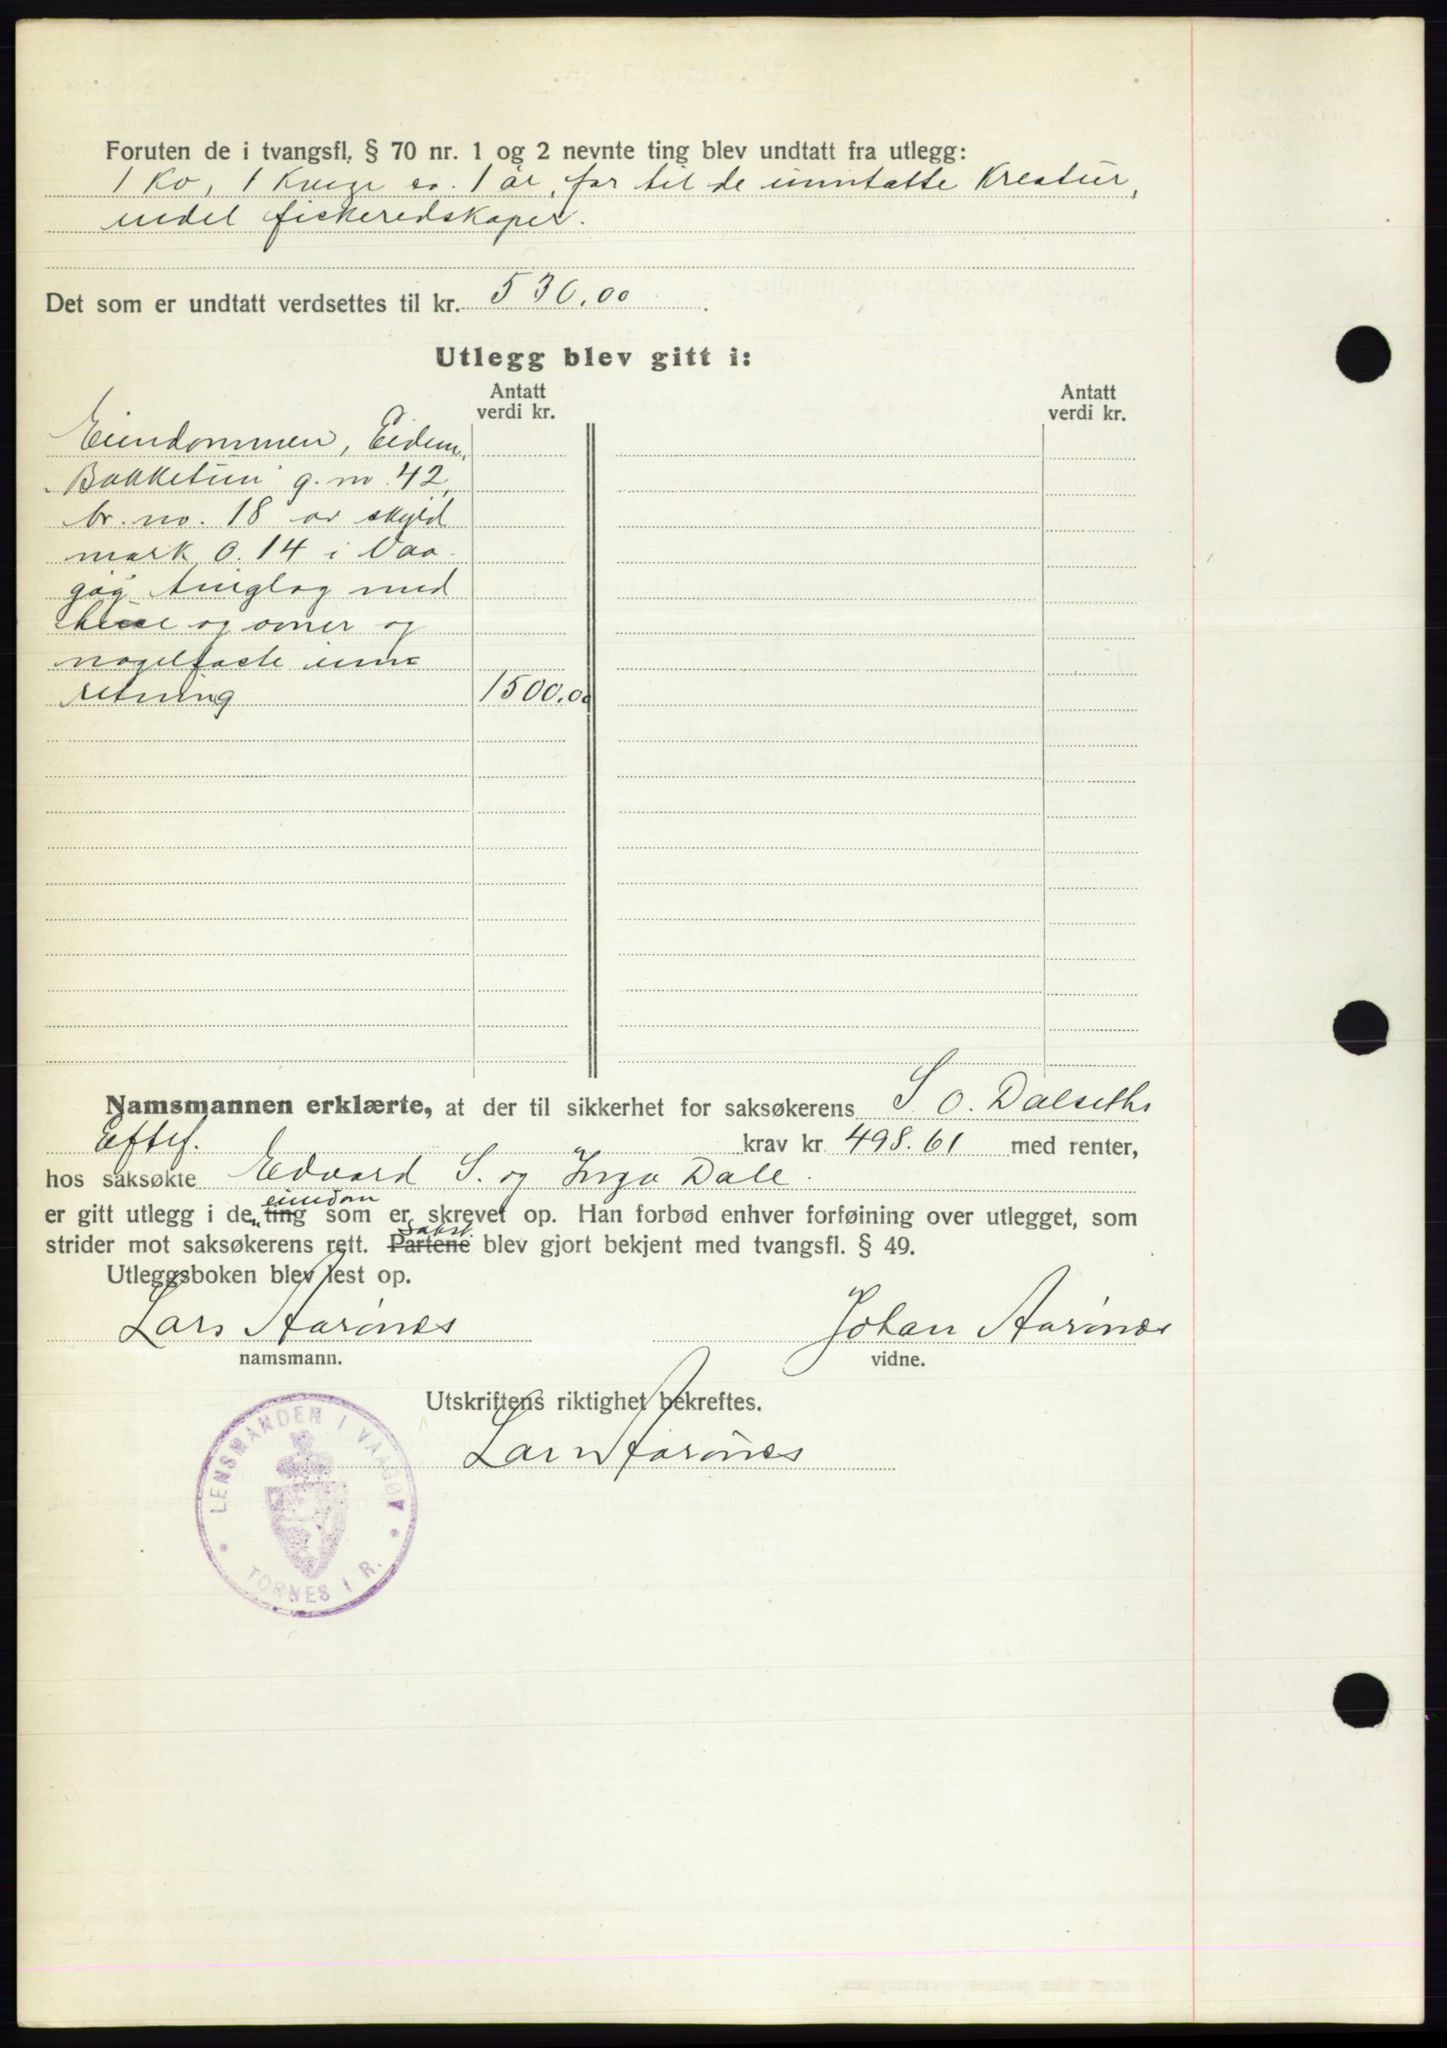 Foruten de i tvangsfl. § 70 nr. 1 og 2 nevnte ting blev undtatt fra utlegg:
1 Ko, 1 Kvige ca. 1 år, for til de unntatte Kreatur,
endel fiskeredskaper.
Det som er undtatt verdsettes til kr. 530,00.
Utlegg blev gitt i:
Antatt verdi kr.
Antatt verdi kr.
Eiendommen, Eidem,
Bakketun g. no. 42,
br. no. 18 av skyld
mark 0.14 i Vaa-
göy tinglag med
huse og omer og
nagelfaste inn-
retning 1500.00
Namsmannen erklærte, at der til sikkerhet for saksøkerens S O. Dalseths
Eftf. krav kr. 498.61 med renter,
hos saksøkte Edvard S. og Inga Dale.
eiendom
er gitt utlegg i de ting som er skrevet op. Han forbød enhver forføining over utlegget, som
Sakst.
strider mot saksøkerens rett. Partene blev gjort bekjent med tvangsfl. § 49.
Utleggsboken blev lest op.
Lars Aarönes
Johan Aarönes
namsmann.
vidne.
Utskriftens riktighet bekreftes.
Lars Aarönes
LENSMANDEN I VAAGØY
* TORNES I R. *